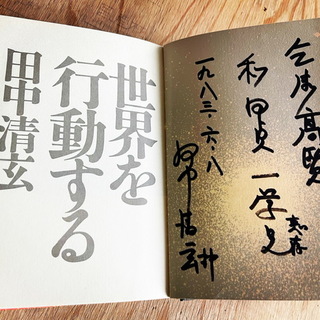 乞御高覧
和田良一学兄
恵存
一九八三・六・八
田中清玄
世界を
行動する
田中清玄